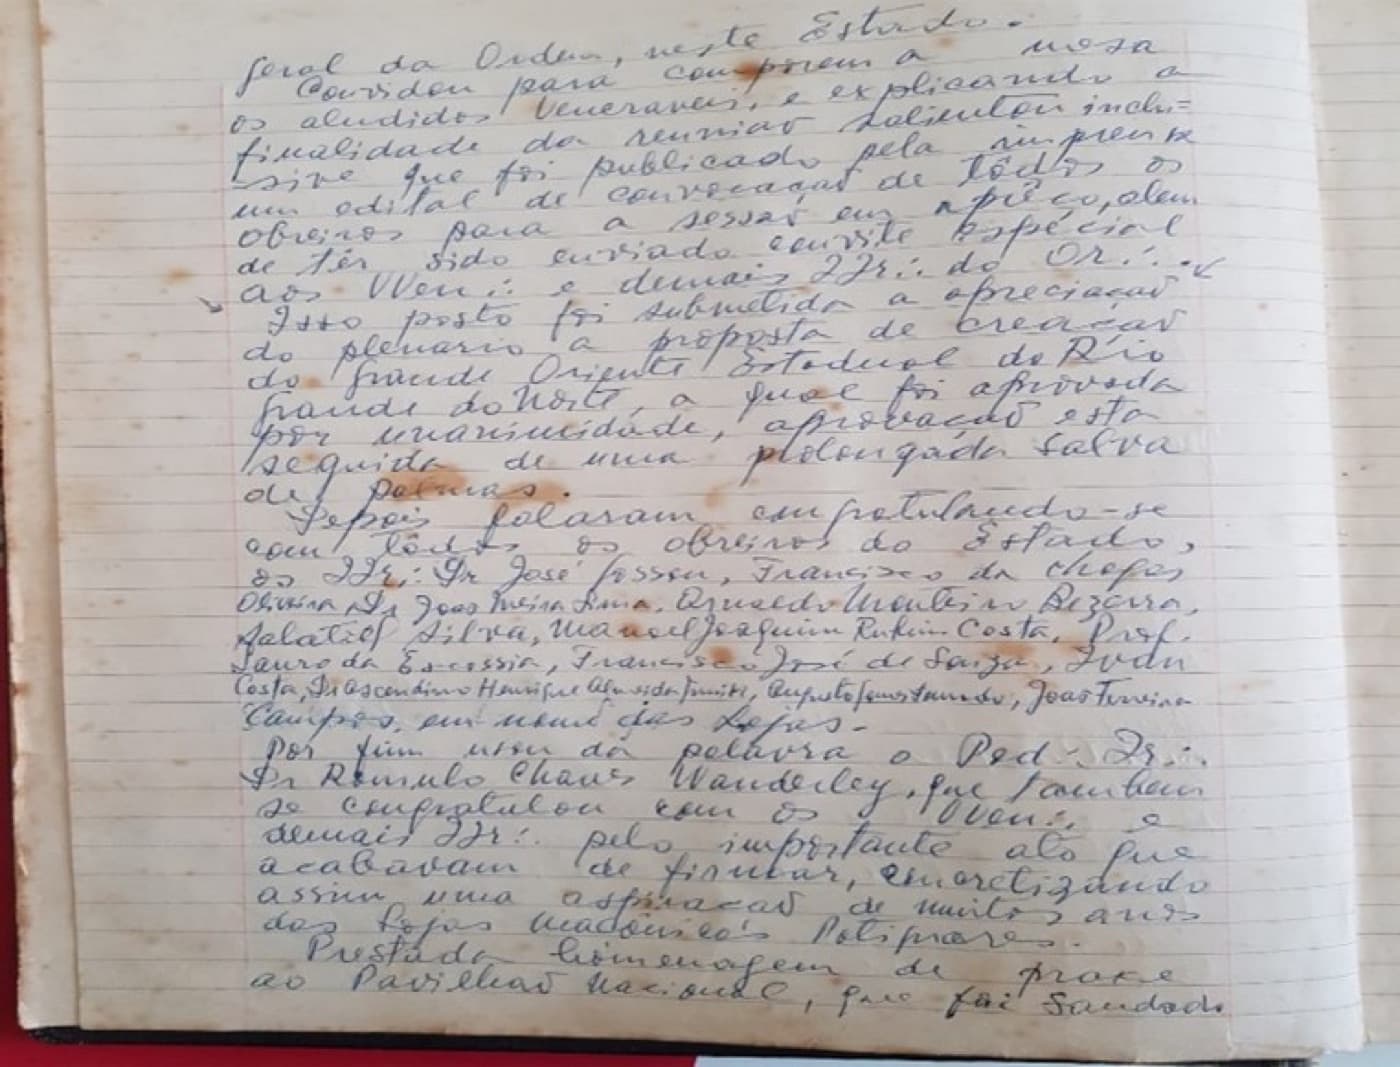 Geral da Ordem, neste Estado.
Convidou para comporem a mesa
os aludidos Veneraveis, e explicando a
finalidade da reunião salientou inclu=
sive que foi publicado pela imprensa
um edital de convocação de todos os
obreiros para a sessão em aprêço, alem
de têr sido enviado convite especial
aos VVen∴ e demais IIr∴ do Or∴.
Isso posto foi submetida a apreciação
do plenario a proposta de creação
do Grande Oriente Estadual do Rio
Grande do Norte, a qual foi aprovada
por unanimidade, aprovação esta
seguida de uma prolongada salva
de palmas.
Depois falaram congratulando-se
com todos os obreiros do Estado,
os IIr∴ Dr José Gosson, Francisco da Chagas
Oliveira, Dr Joao Lima, Osvaldo Monteiro Bezerra,
Galatiel Silva, Manoel Joaquim Rufino Costa, Prof.
Lauro da Escossia, Francisco José de Souza, Ivan
Costa, Dr Ascendino Henrique Almeida Junior, Augusto, Joao Ferreira
Campos, em nome das Lojas.-
Por fim usou da palavra o Pod∴ Ir∴
Dr Romulo Chaves Wanderley, que tambem
se congratulou com os VVen∴ e
demais IIr∴ pelo importante ato que
acabavam de firmar, concretizando
assim uma aspiração de muitos anos
das Lojas Maçônicas Potiguares.
Prestada homenagem de praxe
ao Pavilhão Nacional, que foi saudado